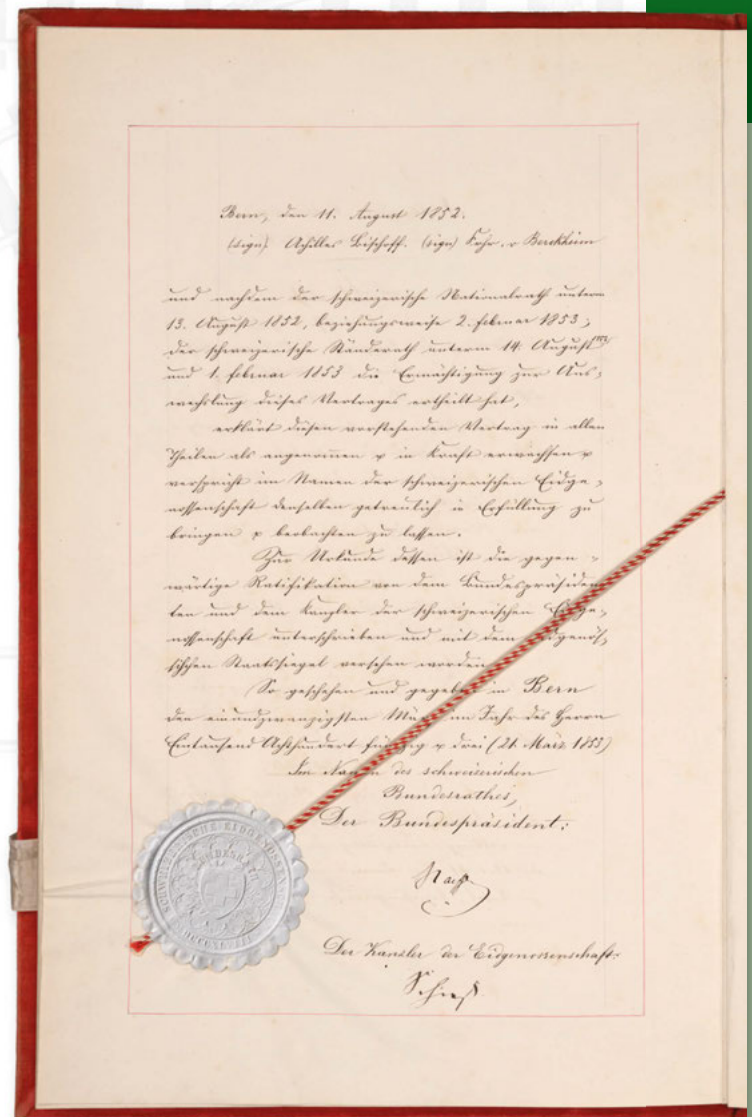 Bern, den 11. August 1852.
(sign). Achilles Bischoff. (sign) Frhr. v. Berckheim
und nachdem der schweizerische Nationalrath unterm
13. August 1852, beziehungsweise 2. Februar 1853;
der schweizerische Ständerath unterm 14. August
und 1. Februar 1853 die Ermächtigung zur Aus-
wechslung dieses Vertrages ertheilt hat,
erklärt diesen vorstehenden Vertrag in allen
Theilen als angenommen & in Kraft erwachsen &
verspricht im Namen der schweizerischen Eidge-
nossenschaft denselben getreulich in Erfüllung zu
bringen & beobachten zu lassen.
Zur Urkunde dessen ist die gegen-
wärtige Ratifikation von dem Bundespräsiden-
ten und dem Kanzler der schweizerischen Eidge-
nossenschaft unterschrieben und mit dem Eidgenös-
sischen Staatssiegel versehen worden
So geschehen und gegeben in Bern
den einundzwanzigsten März im Jahr des Herrn
Eintausend Achthundert fünfzig & drei (21. März 1853)
Im Namen des schweizerischen
Bundesrathes,
Der Bundespräsident:
Naeff
Der Kanzler der Eidgenossenschaft:
Schieß
SCHWEIZERISCHE EIDGENOSSENSCHAFT
BUNDESRATH
MDCCCXLVIII